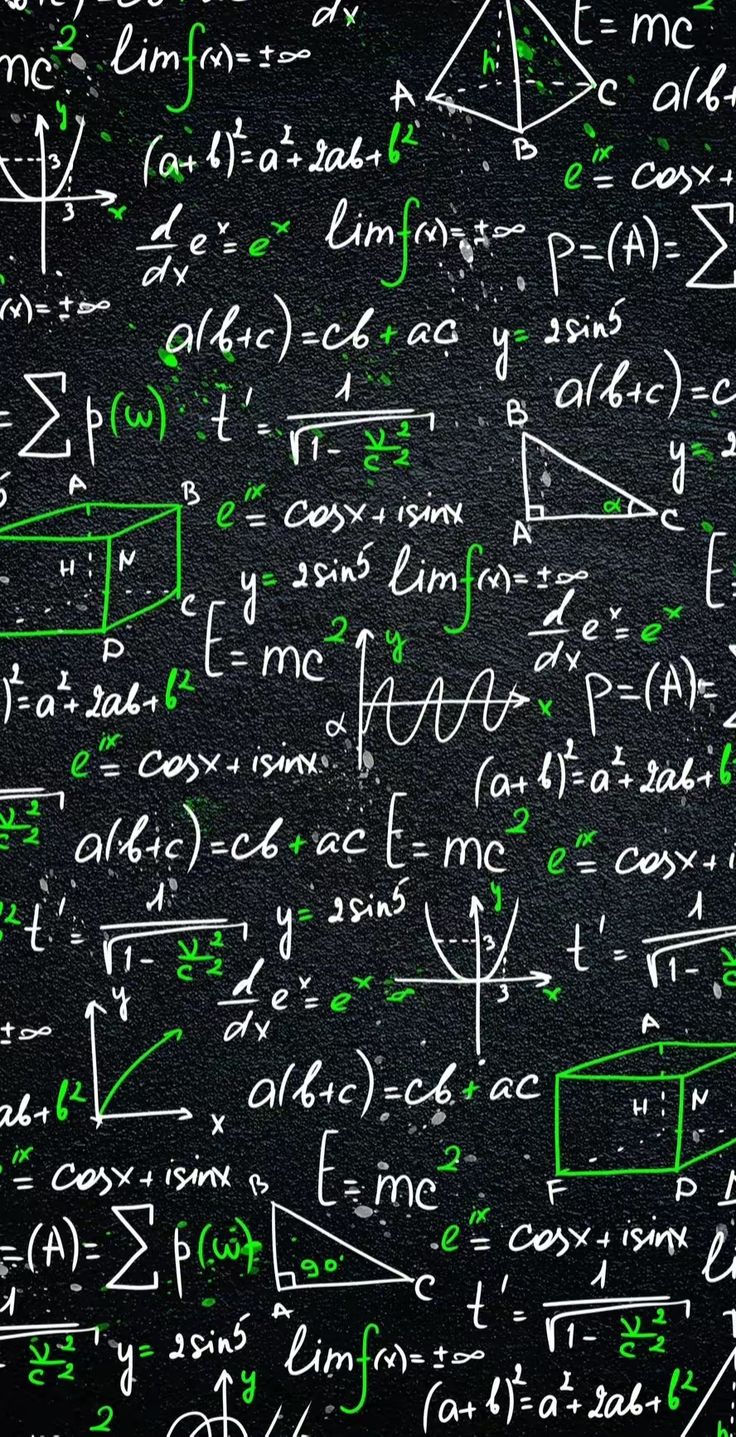 dx
E = mc²
mc² lim f(x) = ±∞
h
A C a(b+
B
y
3
3 x
(a+b)² = a² + 2ab + b²
e^ix = cosx +
d/dx e^x = e^x lim f(x) = ±∞ p=(A)= ∑
(x) = ±∞
a(b+c) = cb + ac y = 2sin5
= ∑ p(w) t' = 1/√(1 - v²/c²) a(b+c) = c
B
y = 2
A B e^ix = cosx + isinx α
A C
H N y = 2sin5 lim f(x) = ±∞ E =
C
D E = mc² y d/dx e^x = e^x
)² = a² + 2ab + b² α x p=(A)=
e^ix = cosx + isinx (a+b)² = a² + 2ab + b
v²/c²
a(b+c) = cb + ac E = mc² e^ix = cosx + i
² t' = 1/√(1 - v²/c²) y = 2sin5 y t' = 1/√(1 - v
3
d/dx e^x = e^x 3 x
±∞ y
A
ab + b² x a(b+c) = cb + ac H N
ix = cosx + isinx E = mc² F D
B
=(A)= ∑ p(w) 90° e^ix = cosx + isinx
A C t' = 1/√(1 - v²/c²)
v²/c² y = 2sin5 lim f(x) = ±∞
y
2 (a+b)² = a² + 2ab + b²
h